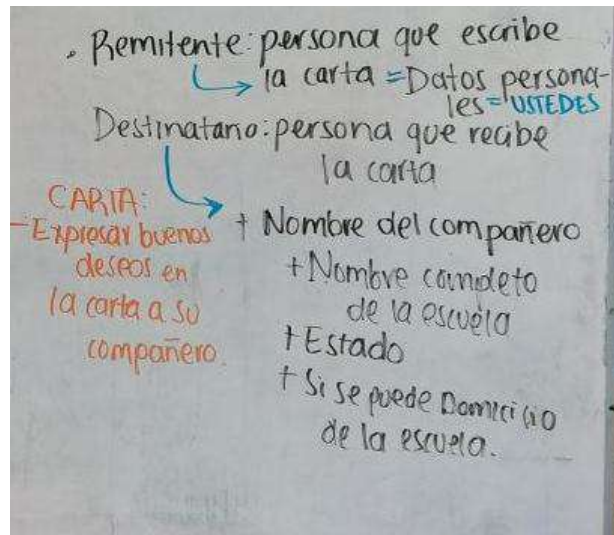 . Remitente: persona que escribe
la carta = Datos persona-
les = USTEDES
Destinatario: persona que recibe
la carta
CARTA:
- Expresar buenos
deseos en
la carta a su
compañero.
+ Nombre del compañero
+ Nombre completo
de la escuela
+ Estado
+ Si se puede Domicilio
de la escuela.